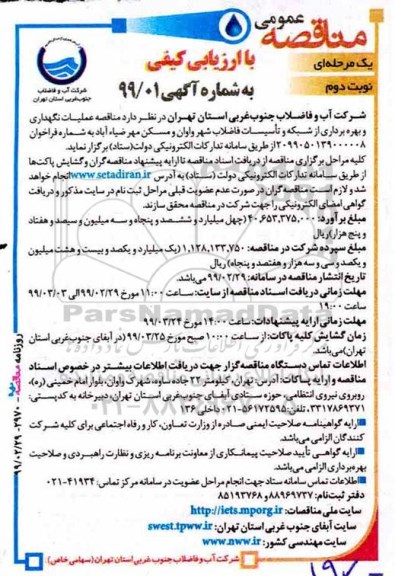 مناقصه عمومی
یک مرحله‌ای
نوبت دوم
با ارزیابی کیفی
به شماره آگهی ۹۹/۰۱
شرکت آب و فاضلاب
جنوب‌غربی استان تهران
شرکت آب و فاضلاب جنوب غربی استان تهران در نظر دارد مناقصه عملیات نگهداری
و بهره برداری از شبکه و تأسیسات فاضلاب شهر واوان و مسکن مهر ضیاء آباد به شماره فراخوان
۲۰۹۹۰۵۰۱۳۹۰۰۰۰۰۸ از طریق سامانه تدارکات الکترونیکی دولت(ستاد) برگزار نماید.
کلیه مراحل برگزاری مناقصه از دریافت اسناد مناقصه تا ارایه پیشنهاد مناقصه‌گران و گشایش پاکت‌ها
از طریق سامانه تدارکات الکترونیکی دولت (ستاد) به آدرس www.setadiran.ir انجام خواهد
شد و لازم است مناقصه گران در صورت عدم عضویت قبلی مراحل ثبت نام در سایت مذکور و دریافت
گواهی امضای الکترونیکی را جهت شرکت در مناقصه محقق سازند.
مبلغ برآورد: ۴۰,۶۵۳,۳۷۵,۰۰۰ (چهل میلیارد و ششصد و پنجاه و سه میلیون و سیصد و هفتاد
و پنج هزار)ریال
مبلغ سپرده شرکت در مناقصه: ۱,۱۲۸,۱۳۳,۷۵۰ (یک میلیارد و یکصد و بیست و هشت میلیون
و یکصد و سی و سه هزار و هفتصد و پنجاه) ریال
تاریخ انتشار مناقصه در سامانه: ۹۹/۰۲/۲۹ می‌باشد.
مهلت زمانی دریافت اسناد مناقصه از سایت: ساعت ۱۱:۰۰ مورخ ۹۹/۰۲/۲۹ الی ۹۹/۰۳/۰۳
ساعت ۱۹:۰۰
مهلت زمانی ارایه پیشنهادات: ساعت ۱۴:۰۰ مورخ ۹۹/۰۳/۲۴
زمان گشایش کلیه پاکات: از ساعت ۱۰:۰۰ صبح مورخ ۹۹/۰۳/۲۵ (در آبفای جنوب‌غربی استان
تهران)می‌باشد.
اطلاعات تماس دستگاه مناقصه گزار جهت دریافت اطلاعات بیشتر در خصوص اسناد
مناقصه و ارایه پاکات: آدرس: تهران، کیلومتر ۲۲ جاده ساوه، شهرک واوان، بلوار امام خمینی (ره)،
روبروی نیروی انتظامی، حوزه ستادی آبفای جنوب غربی استان تهران، دبیرخانه به کدپستی:
۳۳۱۷۸۶۹۳۷۱ تلفن: ۵۶۱۷۲۵۹۵-۰۲۱ داخلی ۱۳۶
ارایه گواهینامه صلاحیت ایمنی صادره از وزارت تعاون، کار و رفاه اجتماعی برای کلیه شرکت
کنندگان الزامی می‌باشد.
ارایه گواهی تأیید صلاحیت پیمانکاری از معاونت برنامه ریزی و نظارت راهبردی و صلاحیت
بهره‌برداری الزامی می‌باشد.
اطلاعات تماس سامانه ستاد جهت انجام مراحل عضویت در سامانه مرکز تماس: ۴۱۹۳۴-۰۲۱
دفتر ثبت‌نام: ۸۸۹۶۹۷۳۷ و ۸۵۱۹۳۷۶۸
سایت ملی مناقصات: http://iets.mporg.ir
سایت آبفای جنوب غربی استان تهران: swest.tpww.ir
سایت مهندسی کشور: www.nww.ir
شرکت آب و فاضلاب جنوب غربی استان تهران (سهامی خاص)
روزنامه مناقصه
ParsNamadData